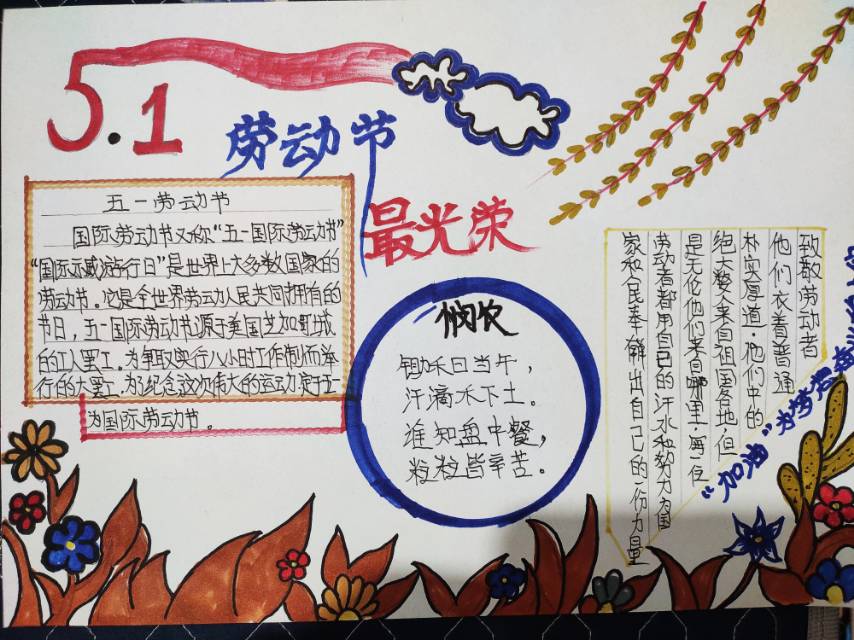 5.1
劳动节
最光荣
五一劳动节
国际劳动节又称“五一国际劳动节”
“国际示威游行日”是世界上大多数国家的
劳动节。它是全世界劳动人民共同拥有的
节日,五一国际劳动节源于美国芝加哥城
的工人罢工。为争取实行八小时工作制而举
行的大罢工,为纪念这次伟大的运动定于五一
为国际劳动节。
悯农
锄禾日当午,
汗滴禾下土。
谁知盘中餐,
粒粒皆辛苦。
致敬劳动者
他们衣着普通
朴实厚道,他们中的
绝大数人来自祖国各地,但
是无伦他们来自哪里,每一位
劳动者都用自己的汗水和努力为国
家和人民奉献出自己的一份力量
“加油”为梦想